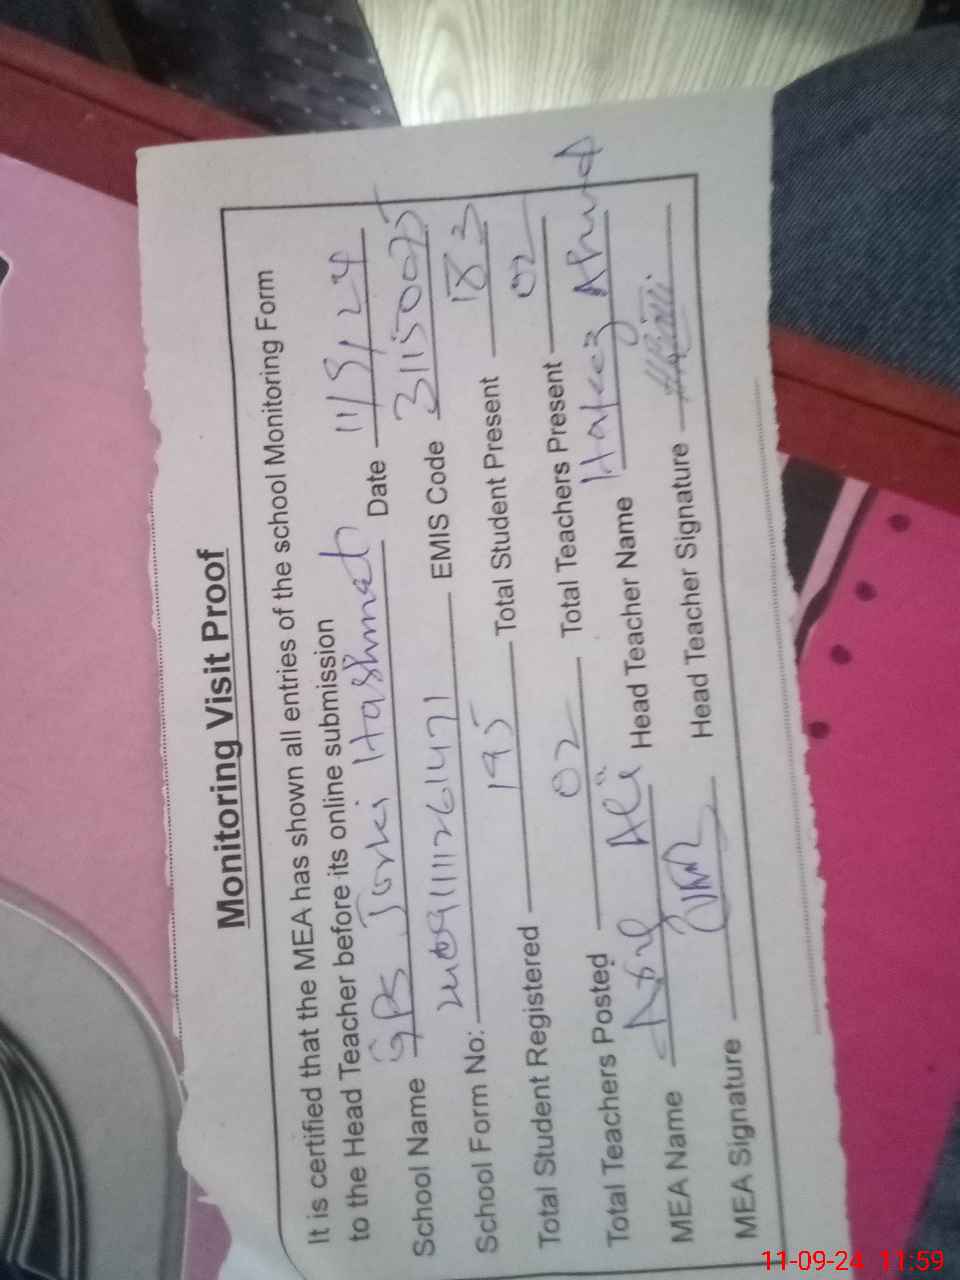 Monitoring Visit Proof
It is certified that the MEA has shown all entries of the school Monitoring Form
to the Head Teacher before its online submission
School Name GPS Jorki Hashmat Date 11/9/24
School Form No: EMIS Code 31150075
Total Student Registered 195 Total Student Present 183
Total Teachers Posted 02 Total Teachers Present 02
MEA Name Ali Head Teacher Name Hafeez Ahmad
MEA Signature Head Teacher Signature
11-09-24 11:59